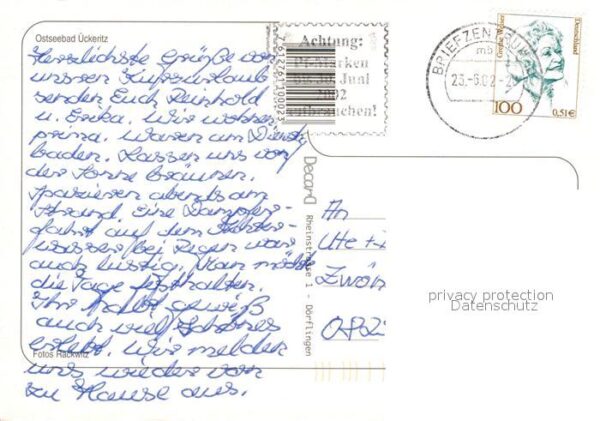 Ostseebad Ückeritz
Herzlichste Grüße von
unserem Kurzurlaub
senden Euch Reinhold
u. Erika. Wir wohnen
prima. Waren am Dienstag
baden. Lassen uns von
der Sonne bräunen.
Spazieren abends am
Strand. Eine Dampfer-
fahrt auf dem
wasser bei Regen war
auch lustig. Man möchte
die Tage festhalten.
Ihr habt gewiß
auch viel Schönes
erlebt. Wir melden
uns wieder von
zu Hause aus.
Fotos Rackwitz
9627611000023
Decard Rheinstrasse 1 - Dörflingen
Achtung:
Pf-Marken
bis 30. Juni
2002
aufbrauchen!
BRIEFZENTRUM
mb
23.-6.02
Grethe Weiser
Deutschland
100
0,51€
An
Ute +
Zwön
privacy protection
Datenschutz